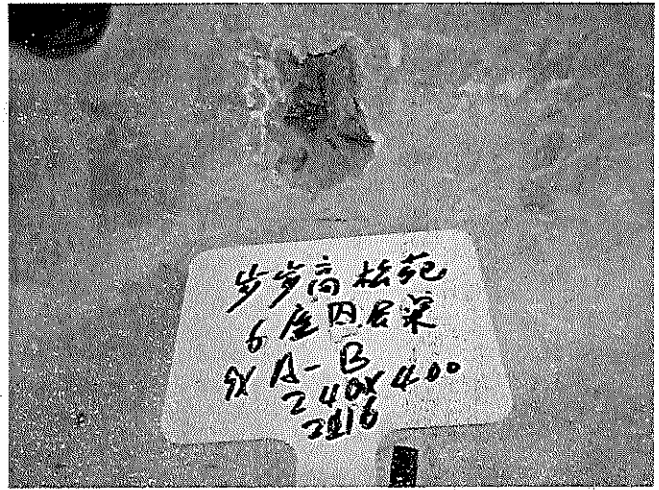 步步高松苑
6座四层梁
9X A-B
240X400
2Φ16